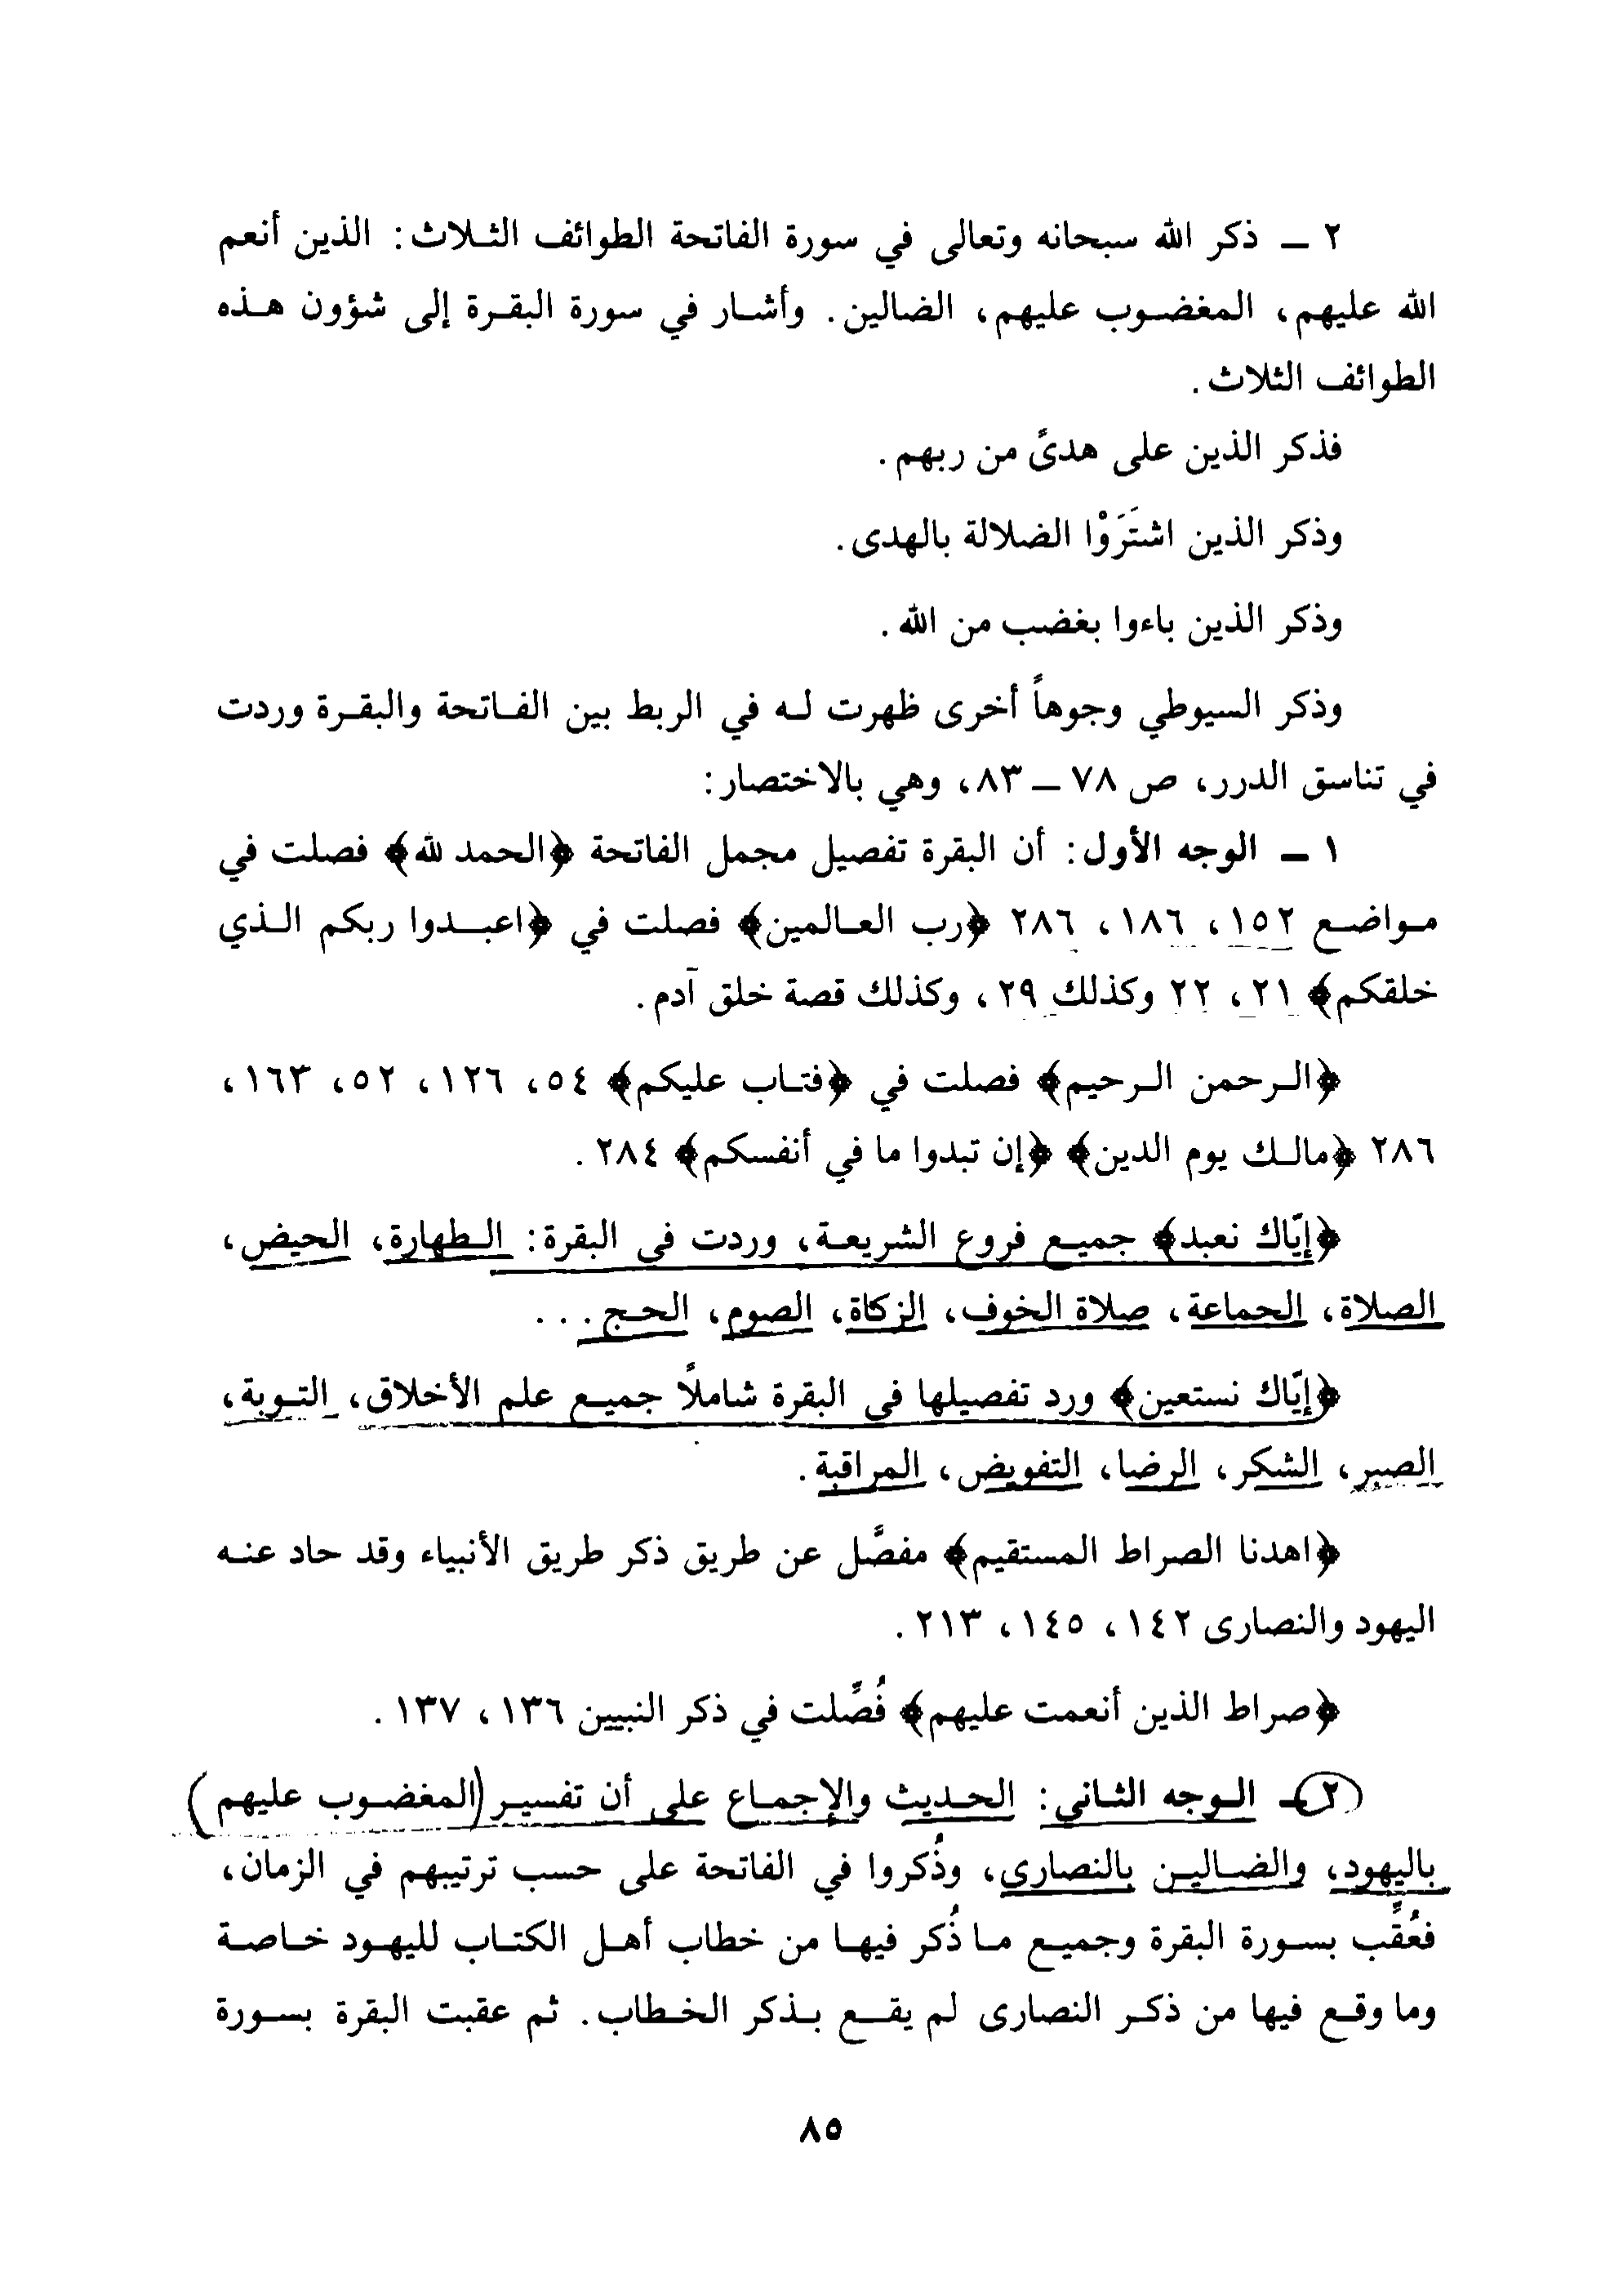 ٢ ــ ذكر الله سبحانه وتعالى في سورة الفاتحة الطوائف الثلاث: الذين أنعم
الله عليهم، المغضوب عليهم، الضالين. وأشار في سورة البقرة إلى شؤون هذه
الطوائف الثلاث.
فذكر الذين على هدىً من ربهم.
وذكر الذين اشتَرَوْا الضلالة بالهدى.
وذكر الذين باءوا بغضب من الله.
وذكر السيوطي وجوهاً أخرى ظهرت له في الربط بين الفاتحة والبقرة وردت
في تناسق الدرر، ص ٧٨ ــ ٨٣، وهي بالاختصار:
١ ــ الوجه الأول: أن البقرة تفصيل مجمل الفاتحة ﴿الحمد لله﴾ فصلت في
مواضع ١٥٢، ١٨٦، ٢٨٦ ﴿رب العالمين﴾ فصلت في ﴿اعبدوا ربكم الذي
خلقكم﴾ ٢١، ٢٢ وكذلك ٢٩، وكذلك قصة خلق آدم.
﴿الرحمن الرحيم﴾ فصلت في ﴿فتاب عليكم﴾ ٥٤، ١٢٦، ٥٢، ١٦٣،
٢٨٦ ﴿مالك يوم الدين﴾ ﴿إن تبدوا ما في أنفسكم﴾ ٢٨٤.
﴿إيّاك نعبد﴾ جميع فروع الشريعة، وردت في البقرة: الطهارة، الحيض،
الصلاة، الجماعة، صلاة الخوف، الزكاة، الصوم، الحج...
﴿إيّاك نستعين﴾ ورد تفصيلها في البقرة شاملاً جميع علم الأخلاق، التوبة،
الصبر، الشكر، الرضا، التفويض، المراقبة.
﴿اهدنا الصراط المستقيم﴾ مفصَّل عن طريق ذكر طريق الأنبياء وقد حاد عنه
اليهود والنصارى ١٤٢، ١٤٥، ٢١٣.
﴿صراط الذين أنعمت عليهم﴾ فُصِّلت في ذكر النبيين ١٣٦، ١٣٧.
٢ــ الوجه الثاني: الحديث والإجماع على أن تفسير (المغضوب عليهم)
باليهود، والضالين بالنصارى، وذُكروا في الفاتحة على حسب ترتيبهم في الزمان،
فعُقِّب بسورة البقرة وجميع ما ذُكر فيها من خطاب أهل الكتاب لليهود خاصة
وما وقع فيها من ذكر النصارى لم يقع بذكر الخطاب. ثم عقبت البقرة بسورة
٨٥